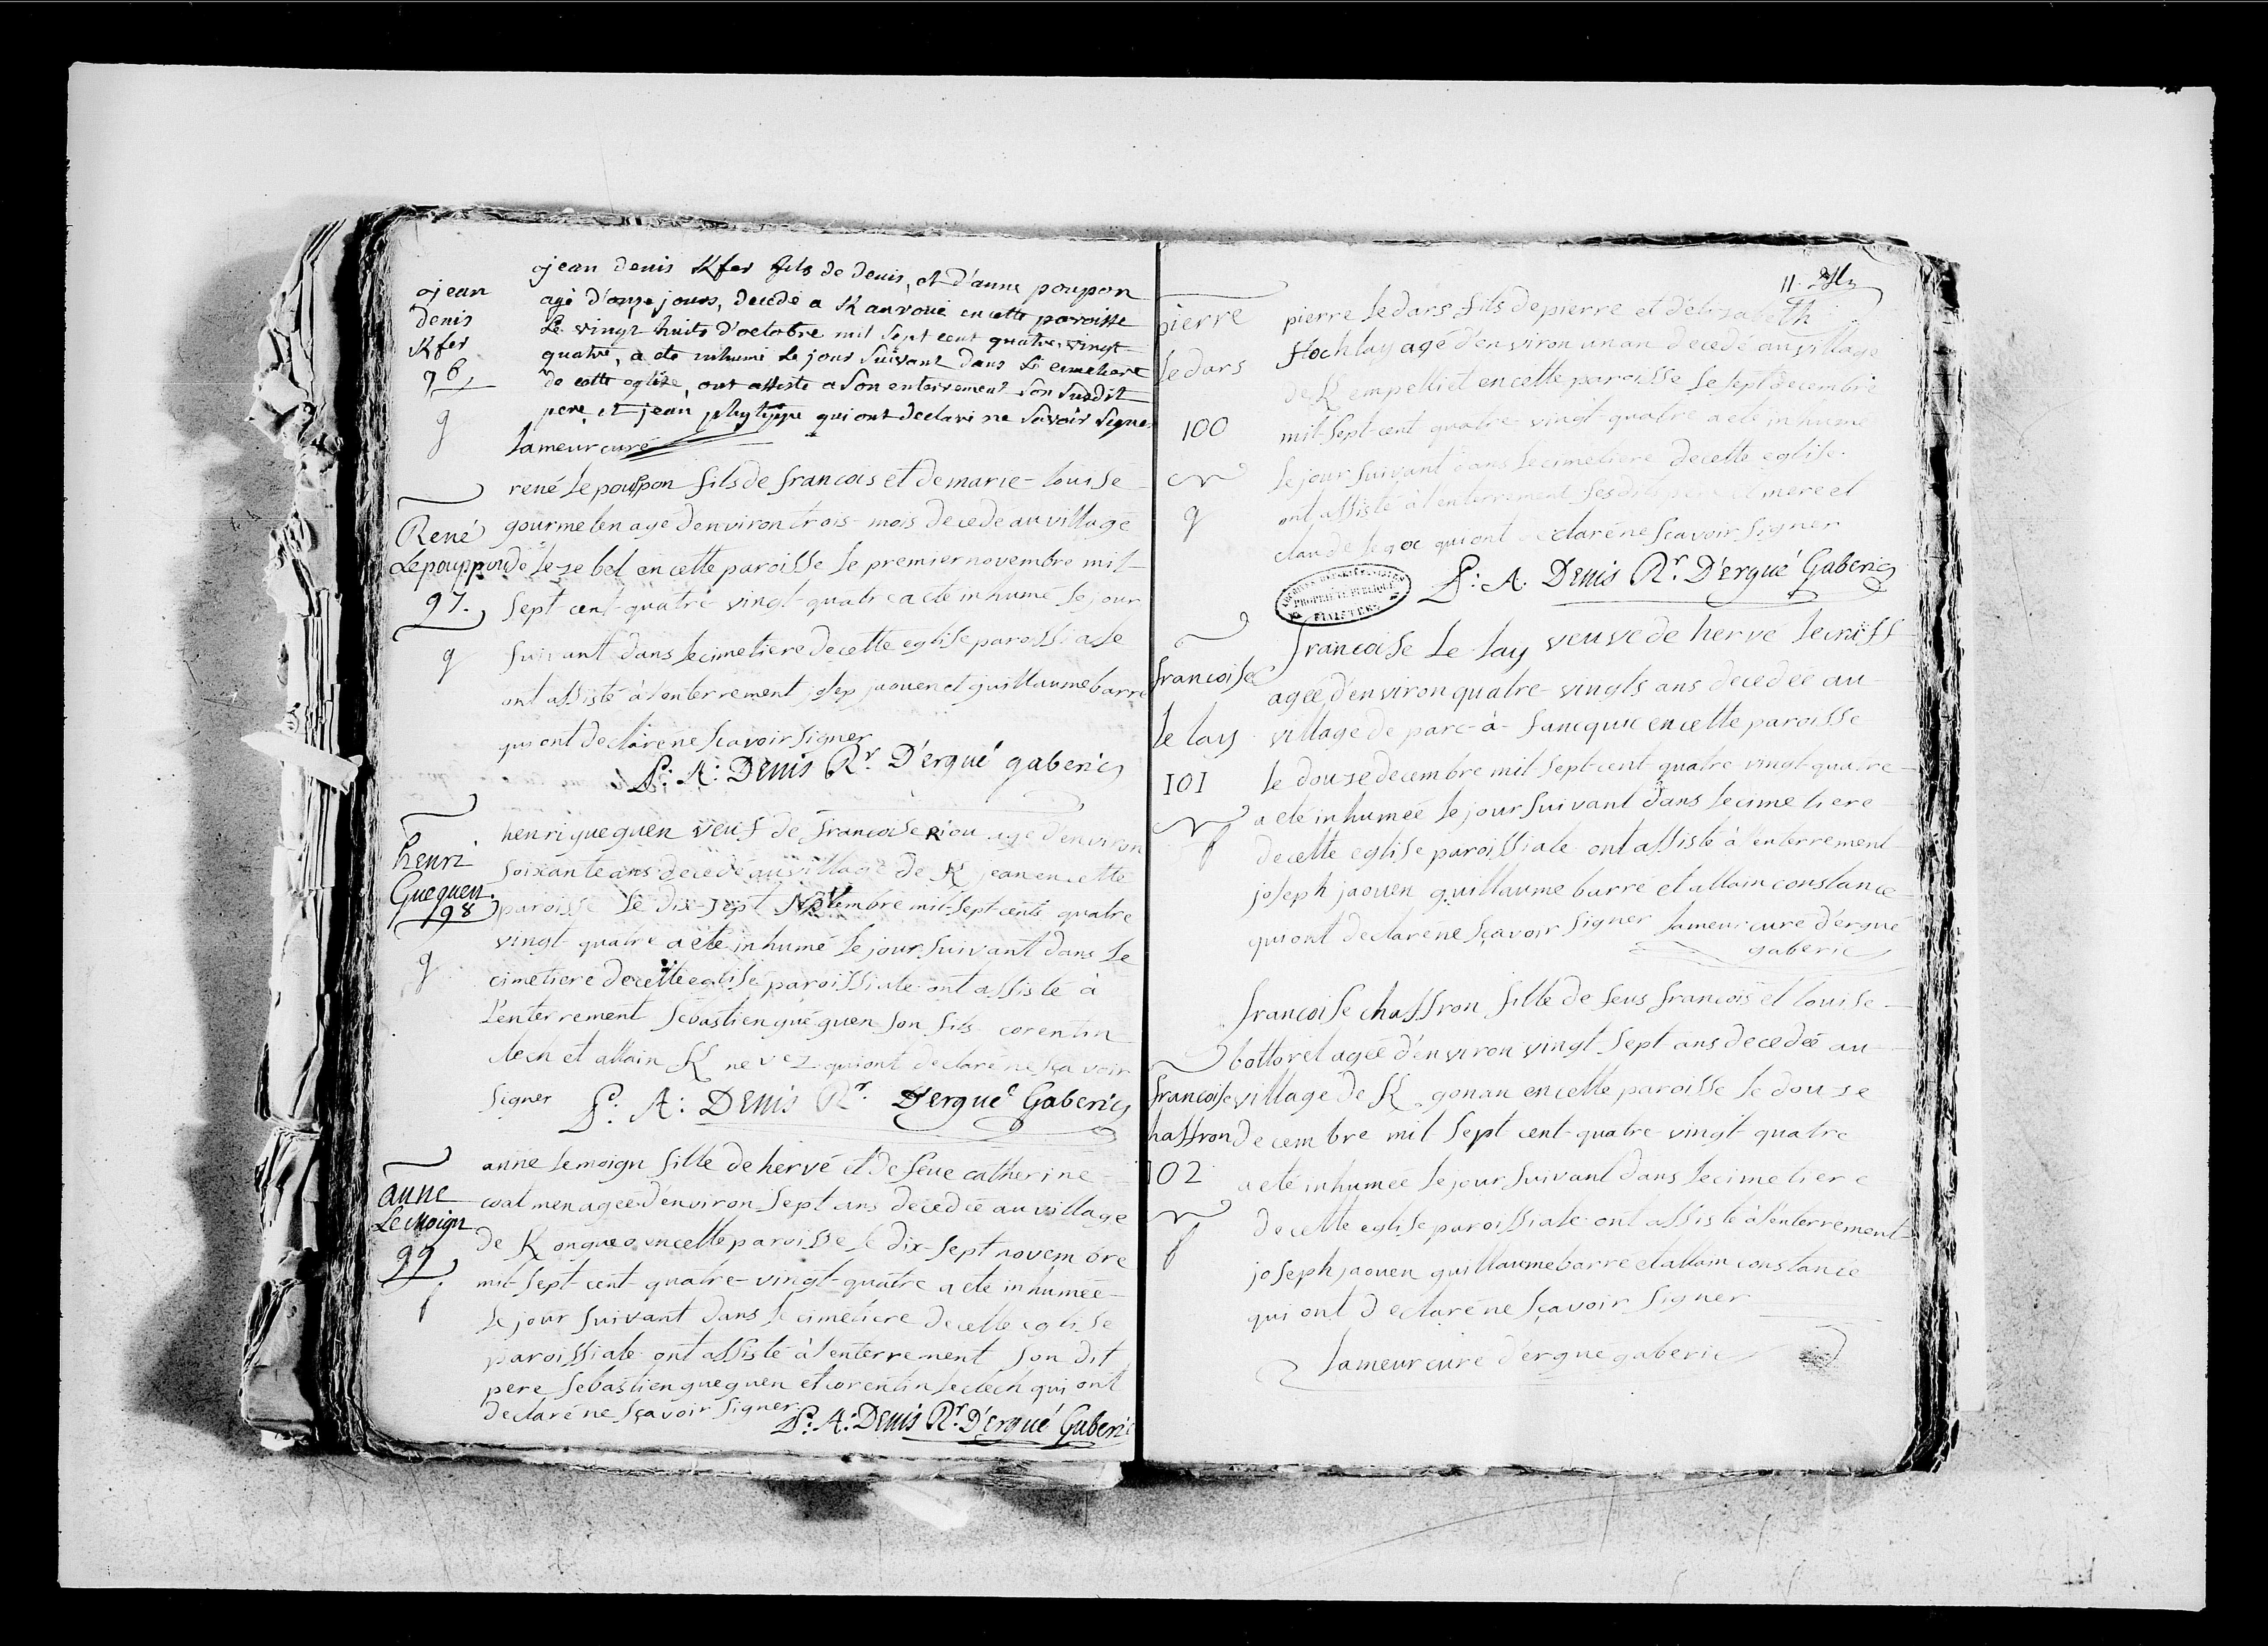 jean
denis
Kfer
96
g
jean denis Kfer fils de denis, et d'anne poupon
agé d'onze jours, decedé a K anvoué en cette paroisse
Le vingt huits d'octobre mil sept cent quatre vingt
quatre, a eté inhumé le jour suivant dans le cimetiere
de cette eglise, ont assisté a son enterrement son susdit
pere et jean phylippe qui ont declaré ne savoir signer
Lameur curé
René
Lepouppon
97.
g
rené Le pouppon fils de francois et de marie-louise
gourmelen agé d'environ trois-mois decedé au village
de Lezebel en cette paroisse Le premier novembre mil
sept cent quatre vingt quatre a eté inhumé le jour
suivant dans le cimetiere de cette eglise paroissiale
ont assisté à l'enterrement josep jaouen et guillaume barre
qui ont declaré ne sçavoir signer
P: A: Denis Rr. D'ergué gaberic
henri
Gueguen.
98
g
henri gueguen veuf de francoise Riou agé d'environ
soixante ans decedé au village de K jean en cette
paroisse Le dix-sept Novembre mil sept cents quatre
vingt quatre a eté inhumé le jour suivant dans le
cimetiere de cette eglise paroissiale ont assisté à
l'enterrement sébastien guéguen son fils corentin
clech et allain K nevez qui ont declaré ne sçavoir
signer P: A: Denis Rr. D'ergué Gaberic
anne
Le Moign
99
f
anne lemoign fille de hervé et de feue catherine
coatmen agée d'environ sept ans decedée au village
de K ongueo en cette paroisse le dix-sept novembre
mil-sept-cent quatre-vingt-quatre a eté inhumée
Le jour suivant dans le cimetiere de cette eglise
paroissiale ont assisté à l'enterrement son dit
pere sebastien gueguen et corentin le clech qui ont
declaré ne sçavoir signer
P: A: Denis Rr. D'ergué Gaberic
11.
pierre
ledars
100
g
pierre ledars fils de pierre et d'elizabeth
flochlay agé d'environ un an decedé au village
de K empelliet en cette paroisse le sept decembre
mil-sept-cent quatre vingt-quatre a eté inhumé
le jour suivant dans le cimetiere de cette eglise.
ont assisté à l'enterrement sesdits pere et mere et
claude le goc qui ont declaré ne sçavoir signer
P: A. Denis Rr. D'ergué Gaberic
PROPRIETE PUBLIQUE
FINISTERE
francoise
le lay
101
f
francoise Le lay veuve de hervé lecniff
agée d'environ quatre-vingts ans decedée au
village de parc-à-lancquic en cette paroisse
le douze decembre mil sept-cent quatre vingt-quatre
a eté inhumée le jour suivant dans le cimetiere
de cette eglise paroissiale ont assisté à l'enterrement
joseph jaouen guillaume barre et allain constance
qui ont declaré ne sçavoir signer lameur curé d'ergué
gaberic
francoise
haffron
102
f
francoise chaffron fille de feus francois et louise
bottorel agée d'environ vingt sept ans decedée au
village de K gonan en cette paroisse le douze
decembre mil sept cent quatre vingt quatre
a eté inhumée le jour suivant dans le cimetiere
de cette eglise paroissiale ont assisté à l'enterrement
joseph jaouen guillaume barre et allain constance
qui ont declaré ne sçavoir signer
lameur curé d'ergué gaberic